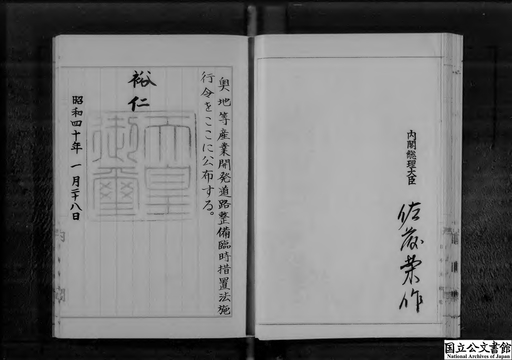 内閣総理大臣
佐藤栄作
奥地等産業開発道路整備臨時措置法施
行令をここに公布する。
裕仁
天皇
御璽
昭和四十年一月二十八日
国立公文書館
National Archives of Japan